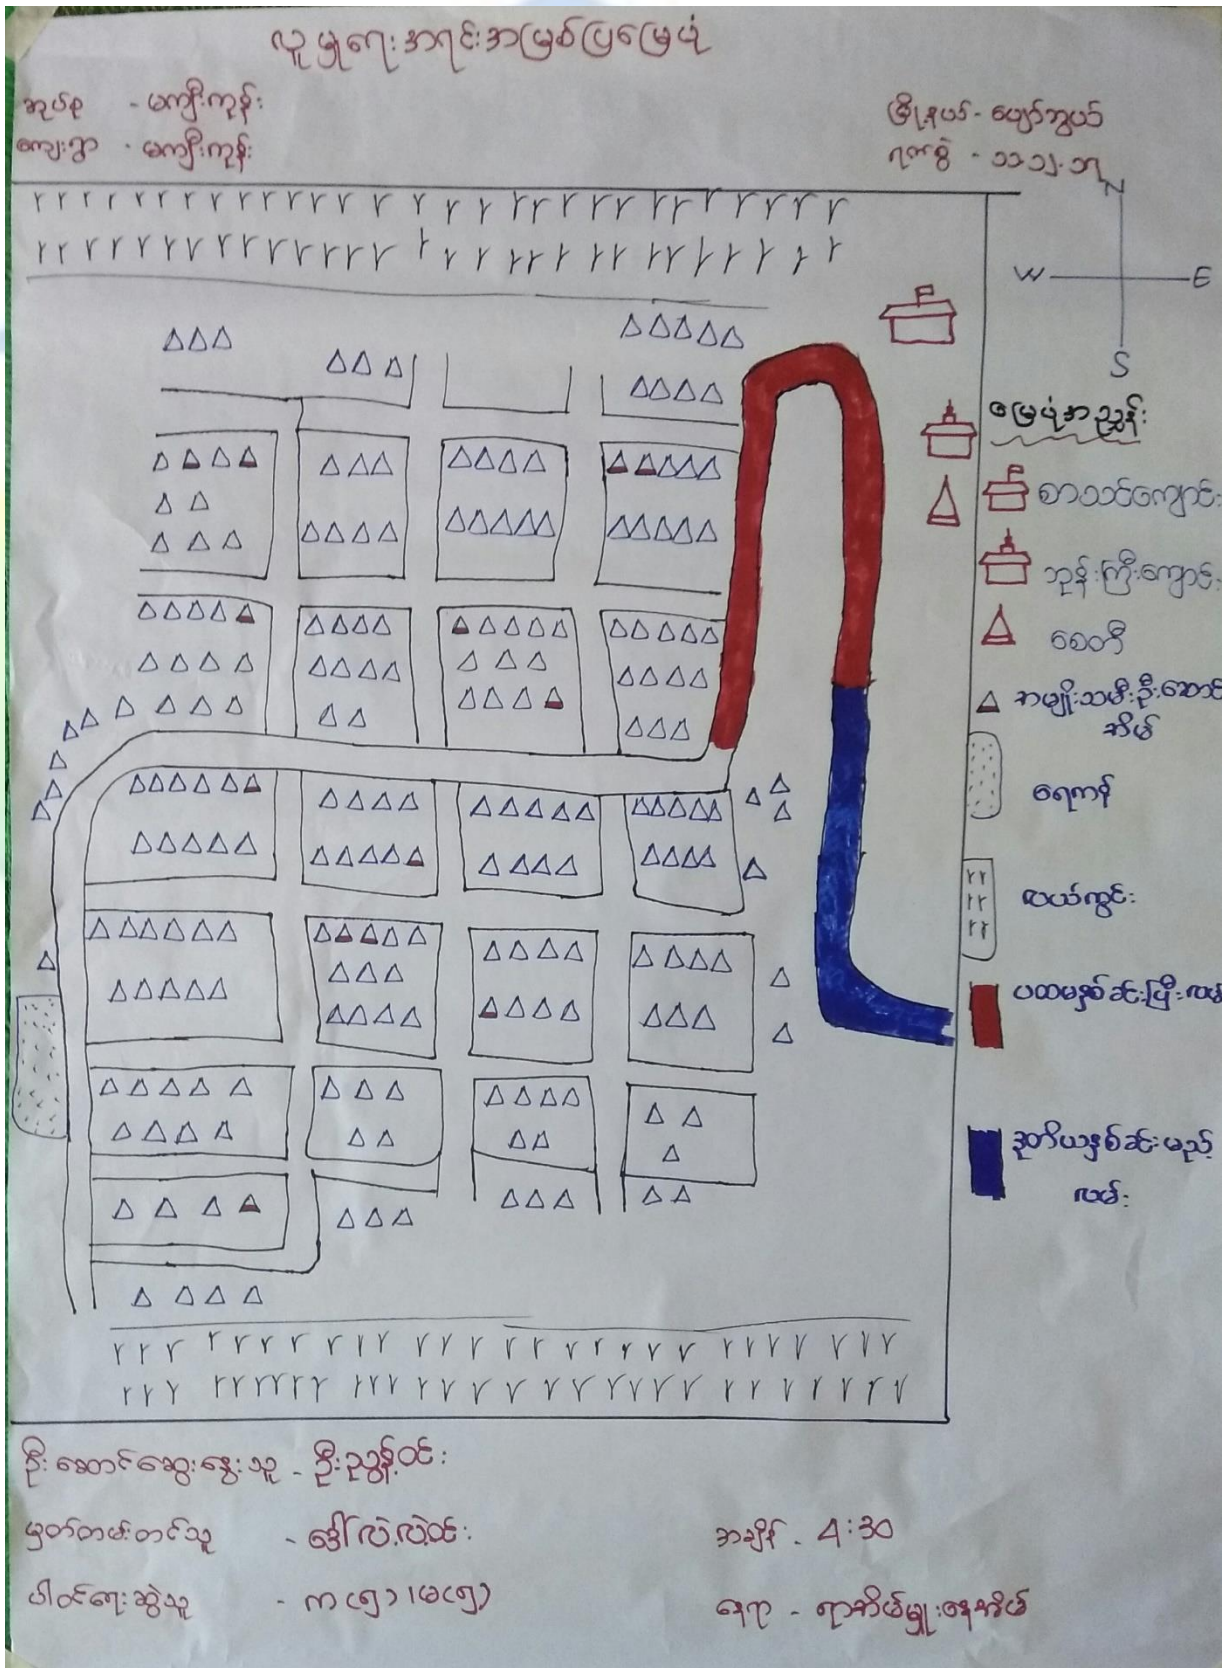 လူမှုရေးအရင်းအမြစ်ပြမြေပုံ
အုပ်စု - မကျီးကုန်း
ကျေးရွာ - မကျီးကုန်း
မြို့နယ် - ပျော်ဘွယ်
ရက်စွဲ - ၁၁.၁၂.၁၇
N
W E
S
မြေပုံအညွှန်း
စာသင်ကျောင်း
ဘုန်းကြီးကျောင်း
စေတီ
အမျိုးသမီးဦးဆောင်
အိမ်
ရေကန်
လယ်ကွင်း
ပထမနှစ်ခင်းပြီးလမ်း
ဒုတိယနှစ်ခင်းမည့်
လမ်း
ဦးဆောင်ဆွေးနွေးသူ - ဦးညွန့်ဝင်း
မှတ်တမ်းတင်သူ - ဒေါ်လဲ့လဲ့ဝင်း
ပါဝင်ရေးဆွဲသူ - က(၅)၊မ(၅)
အချိန် - 4:30
နေရာ - ရာအိမ်မှူးနေအိမ်